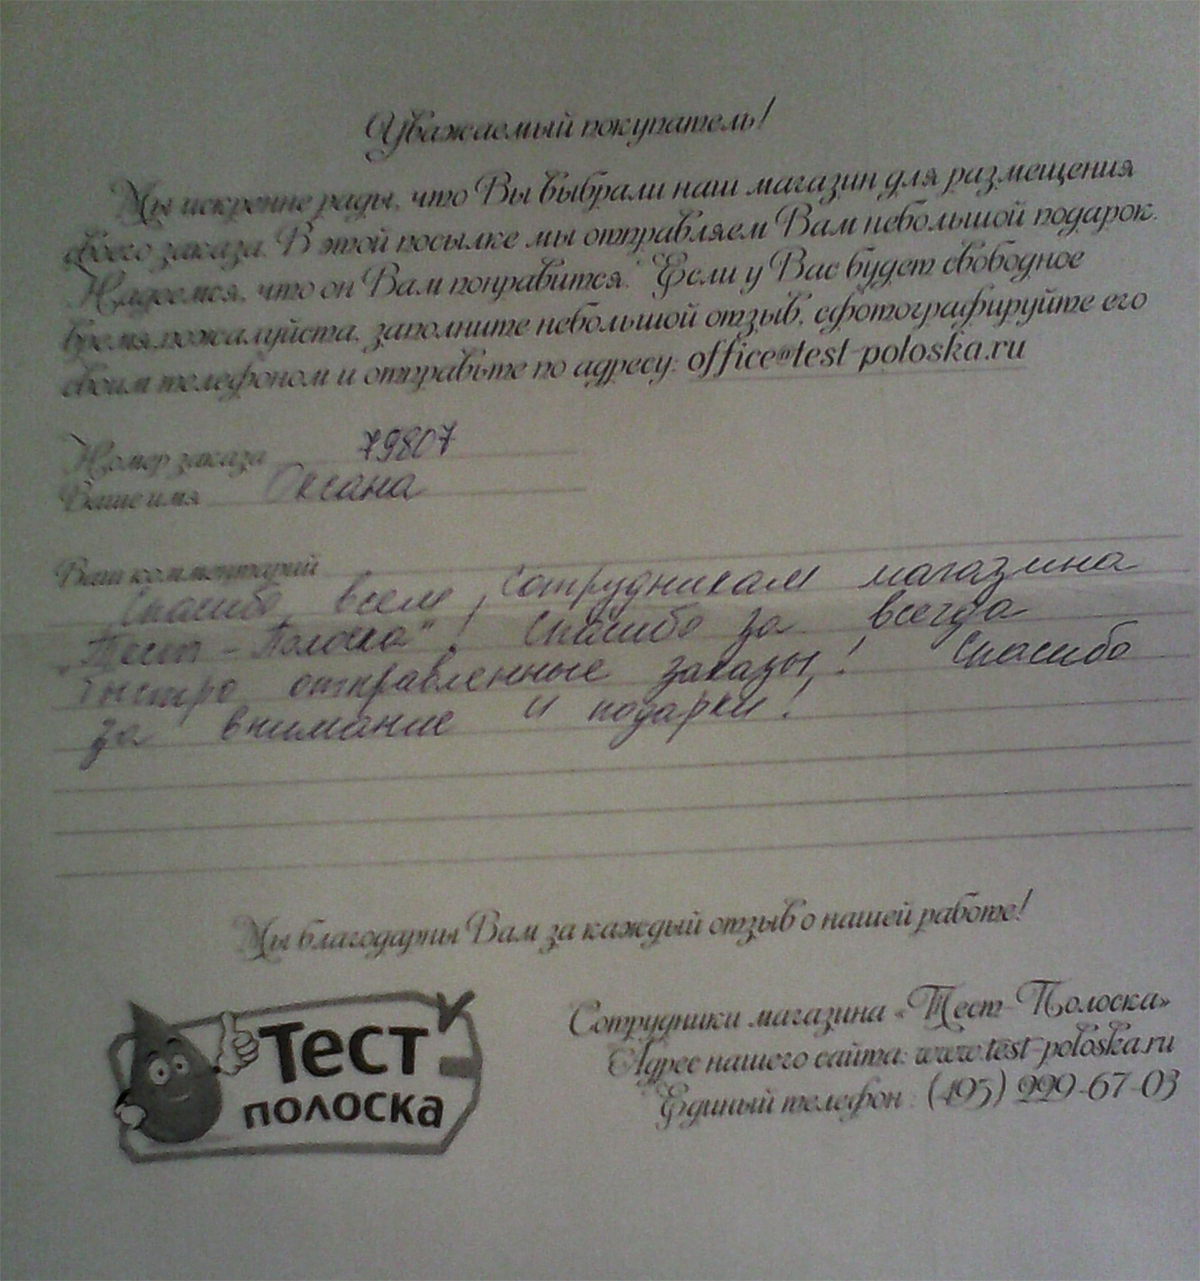 Уважаемый покупатель!
Мы искренне рады, что Вы выбрали наш магазин для размещения
своего заказа. В этой посылке мы отправляем Вам небольшой подарок.
Надеемся, что он Вам понравится. Если у Вас будет свободное
время, пожалуйста, заполните небольшой отзыв, сфотографируйте его
своим телефоном и отправьте по адресу: office@test-poloska.ru
Номер заказа 79807
Ваше имя Оксана
Ваш комментарий
Спасибо всем сотрудникам магазина
"Тест-Полоска"! Спасибо за всегда
быстро отправленные заказы! Спасибо
за внимание и подарки!
Мы благодарны Вам за каждый отзыв о нашей работе!
Тест
полоска
Сотрудники магазина «Тест-Полоска»
Адрес нашего сайта: www.test-poloska.ru
Единый телефон: (495) 999-67-03